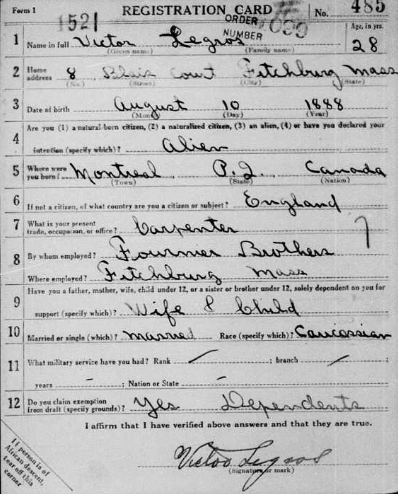 Form 1 1521 REGISTRATION CARD ORDER NUMBER No. 485
1 Name in full Victor Legros Age, in yrs. 28
(Given name) (Family name)
2 Home address 8 Blair Court Fitchburg Mass
(No.) (Street) (City) (State)
3 Date of birth August 10 1888
(Month) (Day) (Year)
4 Are you (1) a natural-born citizen, (2) a naturalized citizen, (3) an alien, (4) or have you declared your
intention (specify which)? Alien
5 Where were you born? Montreal P.Q. Canada
(Town) (State) (Nation)
6 If not a citizen, of what country are you a citizen or subject? England
7 What is your present trade, occupation, or office? Carpenter
8 By whom employed? Fournier Brothers
Where employed? Fitchburg Mass
9 Have you a father, mother, wife, child under 12, or a sister or brother under 12, solely dependent on you for
support (specify which)? Wife & Child
10 Married or single (which)? Married Race (specify which)? Caucassian
11 What military service have you had? Rank / ; branch /
years - ; Nation or State -
12 Do you claim exemption from draft (specify grounds)? Yes Dependents
I affirm that I have verified above answers and that they are true.
Victor Legros
(Signature or mark)
If person is of
African descent,
tear off this
corner